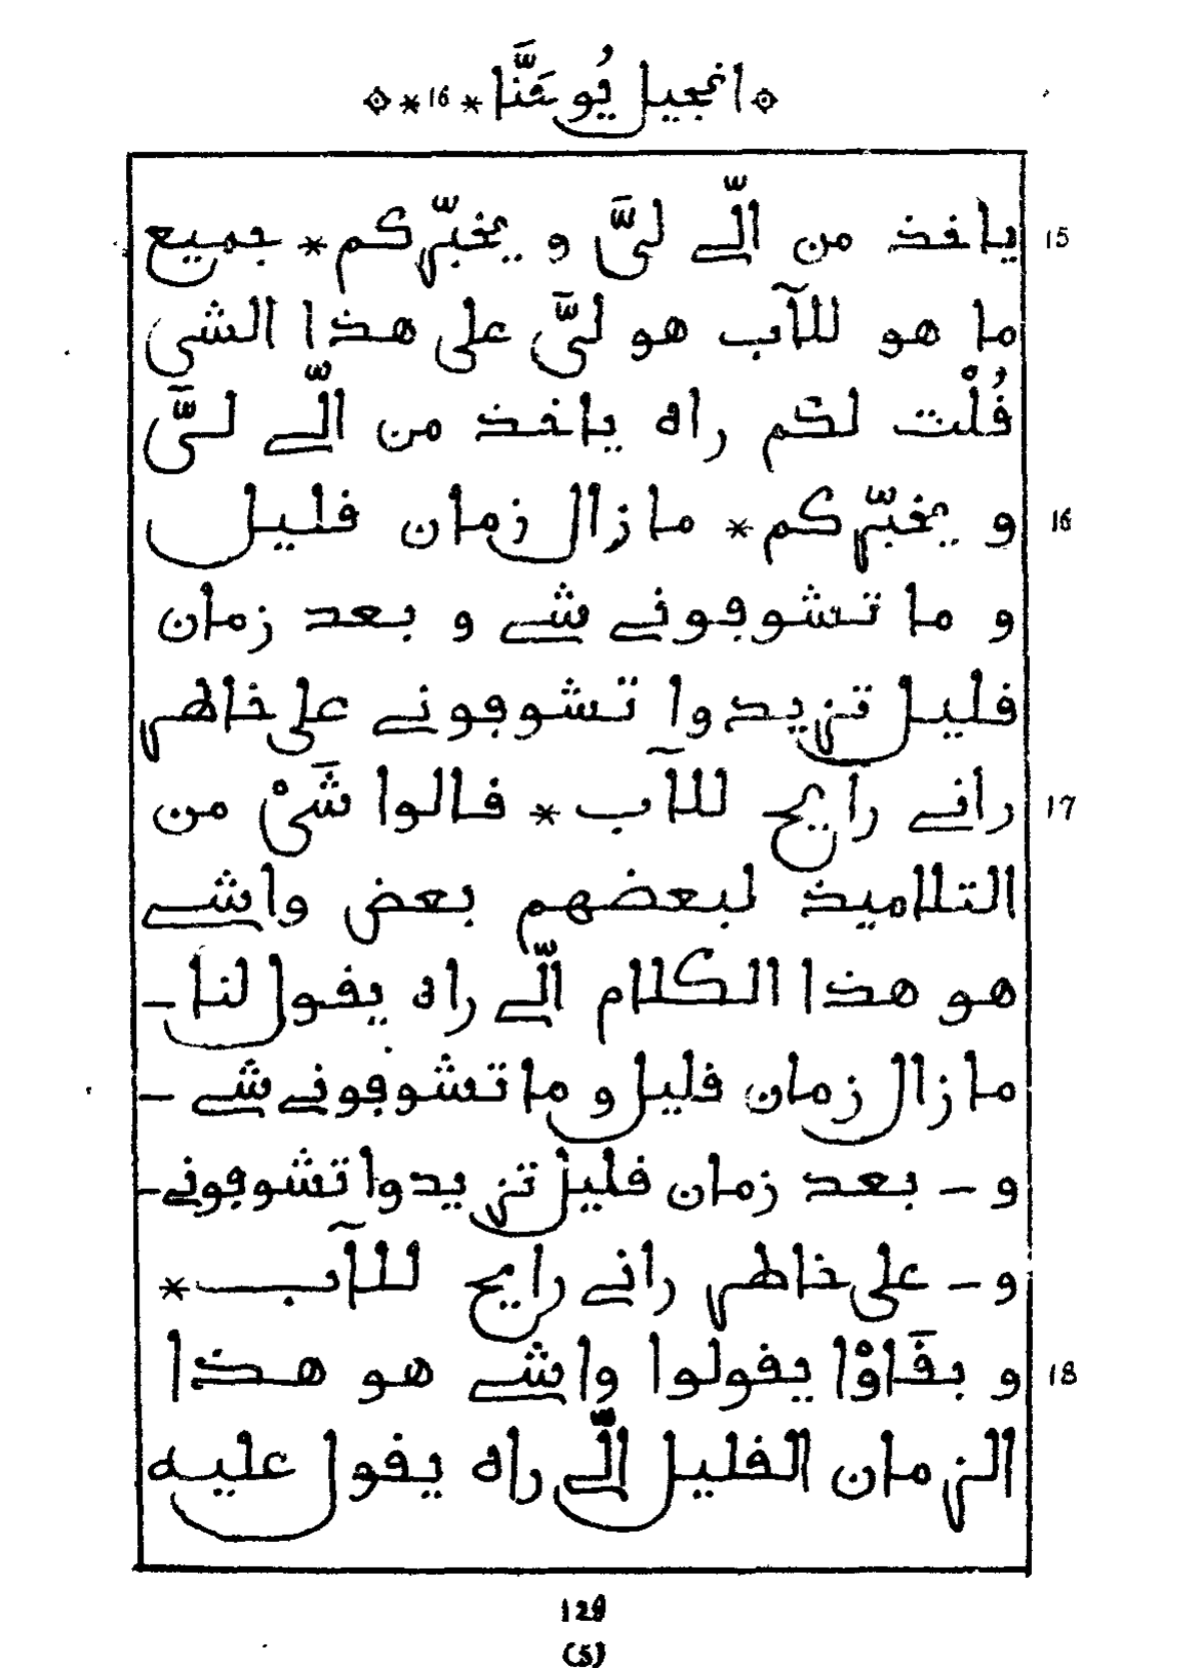 ۞ انجيل يُوحَنَّا * 16 * ۞
15 ياخذ من الّي ليَّ و يخبّركم * جميع
ما هو للآب هو ليَّ على هذا الشي
قُلْت لكم راه ياخذ من الّي ليَّ
16 و يخبّركم * ما زال زمان قليل
و ما تشوفوني شي و بعد زمان
قليل تزيدوا تشوفوني على خاطر
17 راني رايح للآب * قالوا شَيْ من
التلاميذ لبعضهم بعض واشي
هو هذا الكلام الّي راه يقول لنا -
ما زال زمان قليل و ما تشوفوني شي -
و - بعد زمان قليل تزيدوا تشوفوني -
و - على خاطر راني رايح للآب *
18 و بقَاوْا يقولوا واشي هو هذا
الزمان القليل الّي راه يقول عليه
129
(5)